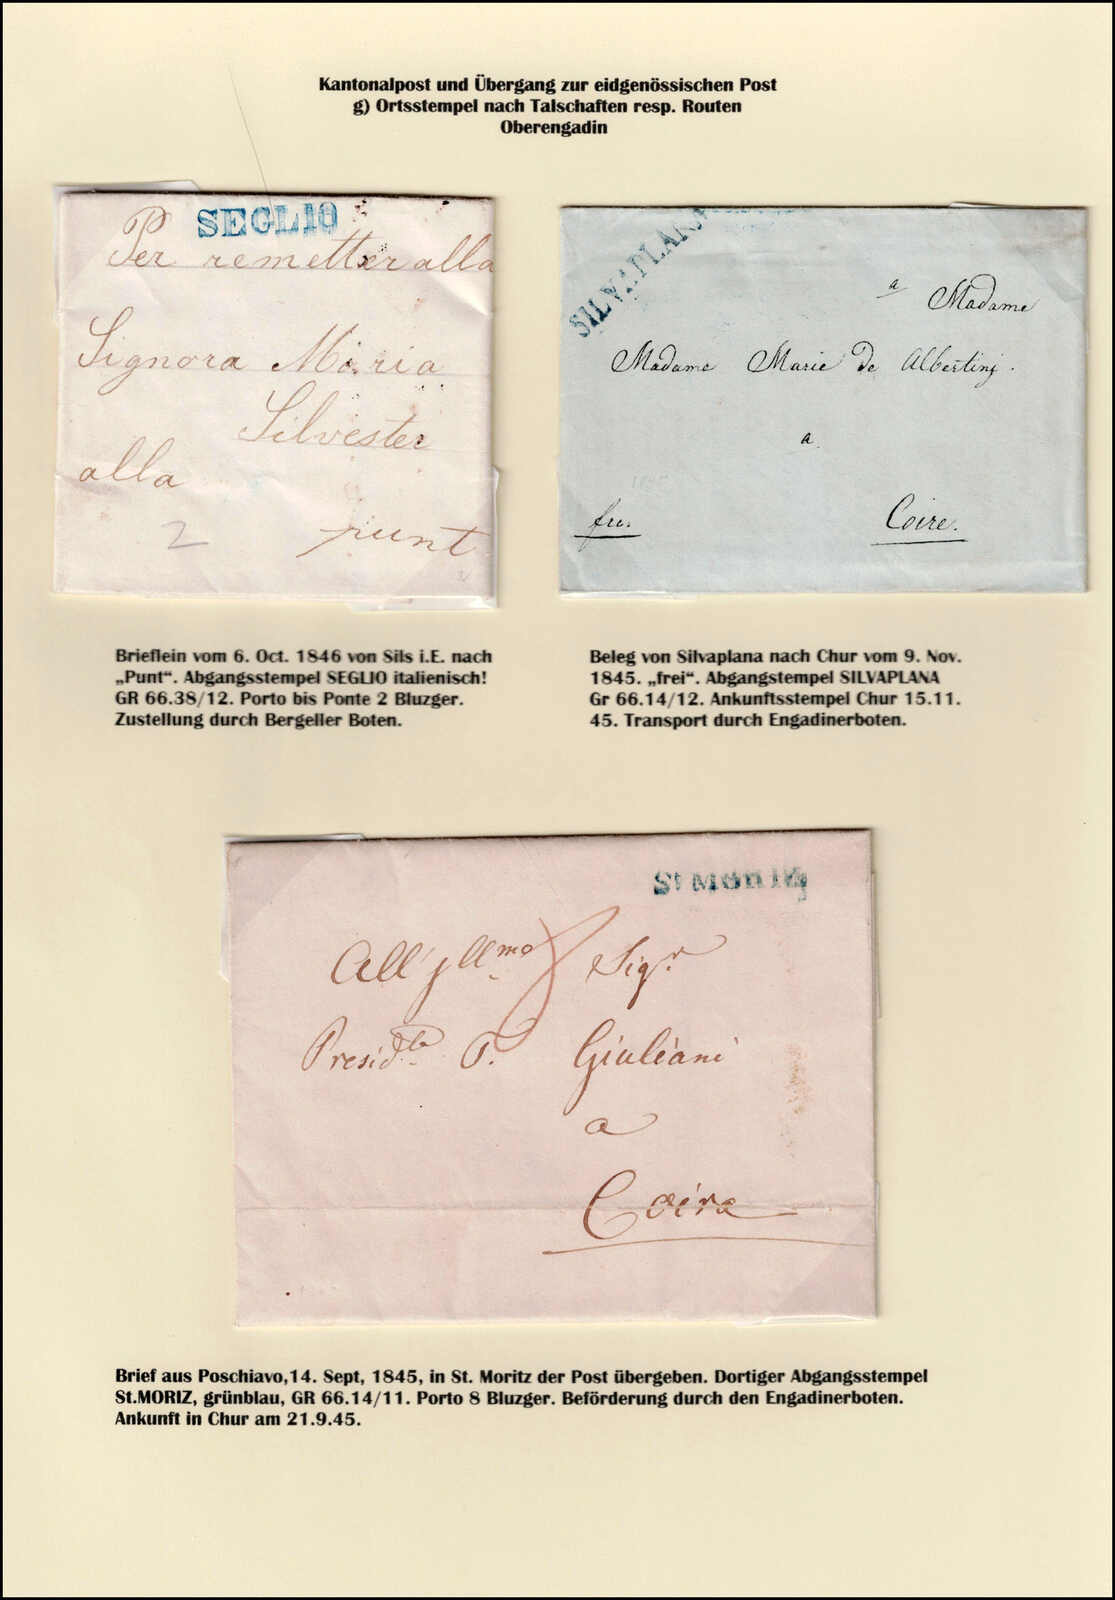 Kantonalpost und Übergang zur eidgenössischen Post
g) Ortsstempel nach Talschaften resp. Routen
Oberengadin
SEGLIO
Per remetter alla
Signora Maria
Silvester
alla
2 punt
SILVAPLANA
a Madame
Madame Marie de Albertini.
a
fro.
Coire.
Brieflein vom 6. Oct. 1846 von Sils i.E. nach
„Punt“. Abgangsstempel SEGLIO italienisch!
GR 66.38/12. Porto bis Ponte 2 Bluzger.
Zustellung durch Bergeller Boten.
Beleg von Silvaplana nach Chur vom 9. Nov.
1845. „frei“. Abgangstempel SILVAPLANA
Gr 66.14/12. Ankunftsstempel Chur 15.11.
45. Transport durch Engadinerboten.
St MORIZ
All'Illmo Sigr
Presidte P. Giuliani
a
Coira
Brief aus Poschiavo,14. Sept, 1845, in St. Moritz der Post übergeben. Dortiger Abgangsstempel
St.MORIZ, grünblau, GR 66.14/11. Porto 8 Bluzger. Beförderung durch den Engadinerboten.
Ankunft in Chur am 21.9.45.